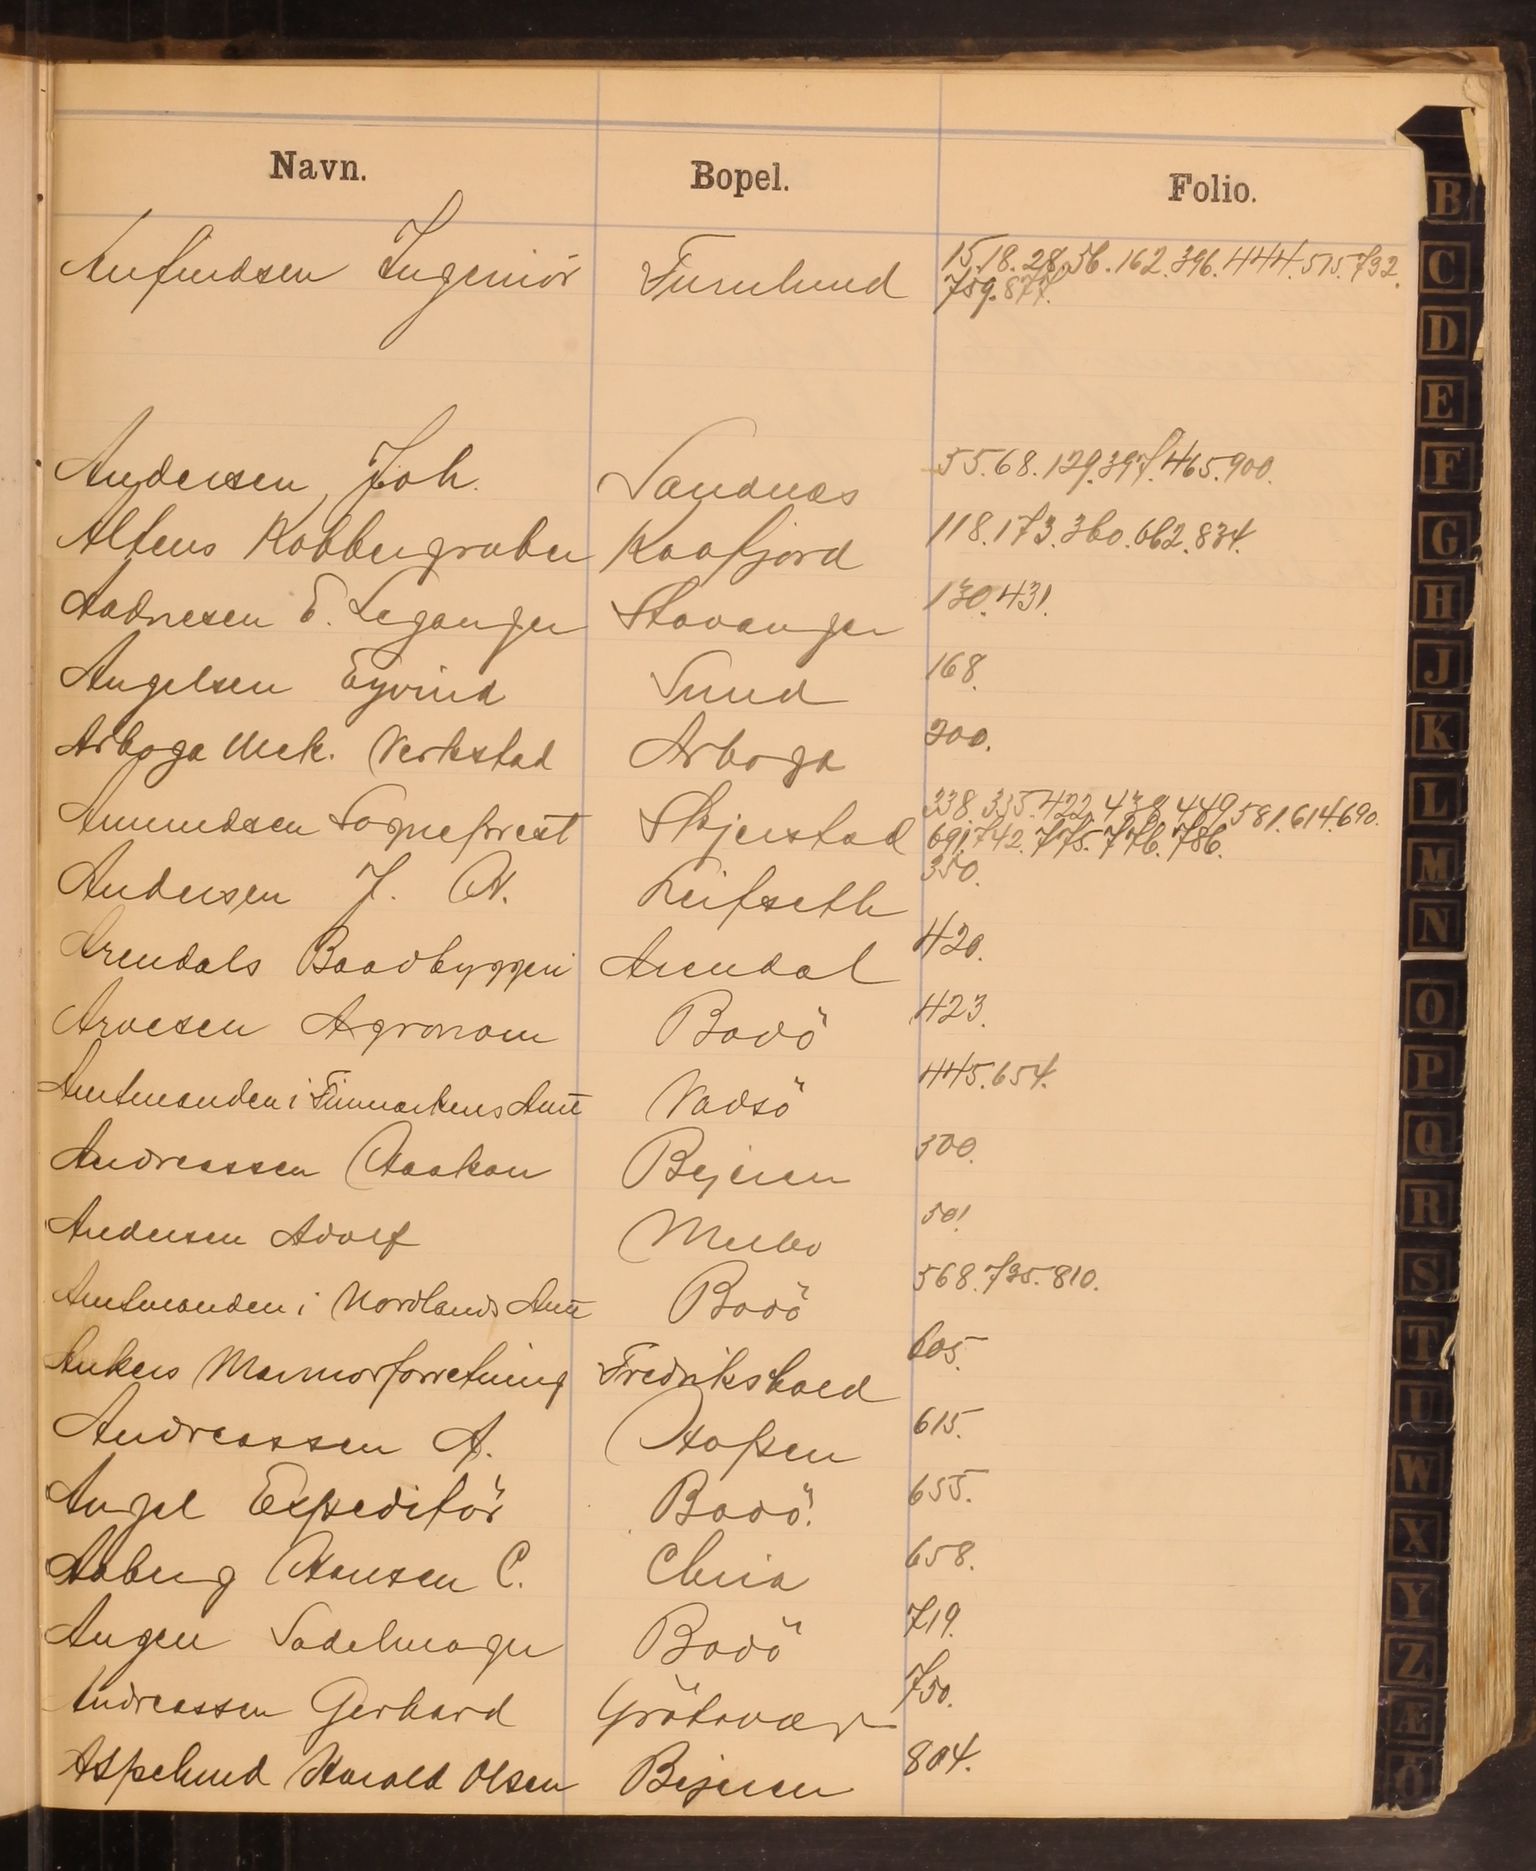 Navn. Bopel. Folio.
Anfindsen Ingeniör Furulund 15.18.28.56.162.396.444.515.732.
759.877.
Andersen, Joh. Sandnæs 55.68.129.397.465.900.
Altens Kobbergruber Kaafjord 118.173.360.662.834.
Aadnesen E. Leganger Stavanger 130.431.
Angelsen Eyvind Sund 168.
Arboga Mek. Verkstad Arboga 200.
Amundsen Sogneprest Skjerstad 338.335.422.438.449.581.614.690.
691.742.775.776.786.
Andersen J. A. Leifseth 350.
Arendals Baadbyggeri Arendal 420.
Arvesen Agronom Bodö 423.
Amtmanden i Finmarkens Amt Vadsö 445.654.
Andreassen Haakon Bejeren 500.
Andersen Adolf Melbo 501.
Amtmanden i Nordlands Amt Bodö 568.735.810.
Ankers Marmorforretning Fredrikshald 605.
Andreassen A. Hopen 615.
Angel Expeditör Bodö. 655.
Aaberg Hansen C. Chria 658.
Angen Sadelmager Bodö 719.
Andreassen Gerhard Grötavær 750.
Aspelund Harald Olsen Bejeren 804.
B
C
D
E
F
G
H
J
K
L
M
N
O
P
Q
R
S
T
U
W
X
Y
Z
Æ
Ö